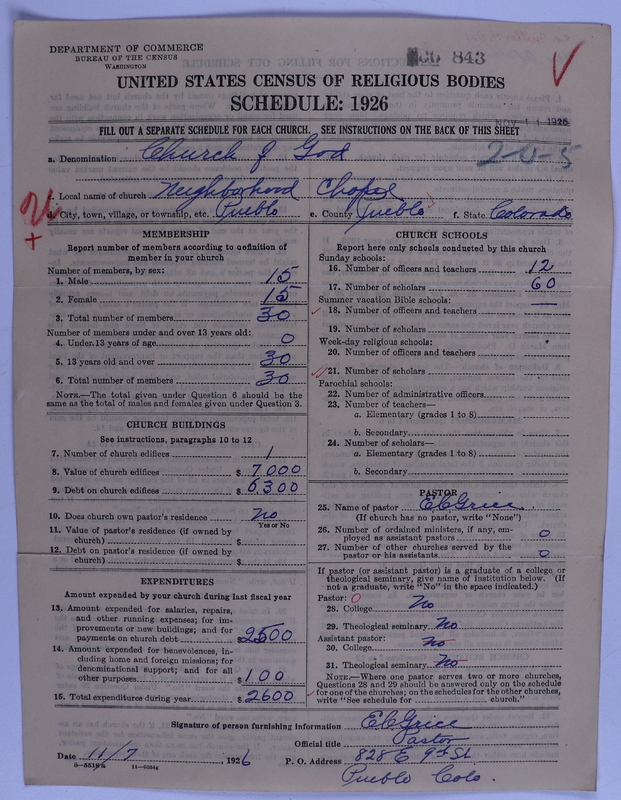 DEPARTMENT OF COMMERCE
BUREAU OF THE CENSUS
WASHINGTON
843
UNITED STATES CENSUS OF RELIGIOUS BODIES
SCHEDULE: 1926
NOV 11 1926
FILL OUT A SEPARATE SCHEDULE FOR EACH CHURCH. SEE INSTRUCTIONS ON THE BACK OF THIS SHEET
a. Denomination Church of God
2-0-5
c. Local name of church Neighborhood Chapel
d. City, town, village, or township, etc. Pueblo e. County Pueblo f. State Colorado
MEMBERSHIP
Report number of members according to definition of
member in your church
Number of members, by sex:
1. Male 15
2. Female 15
3. Total number of members 30
Number of members under and over 13 years old:
4. Under 13 years of age 0
5. 13 years old and over 30
6. Total number of members 30
NOTE.—The total given under Question 6 should be
same as the total of males and females given under Question 3.
CHURCH BUILDINGS
See instructions, paragraphs 10 to 12
7. Number of church edifices 1
8. Value of church edifices $ 7000
9. Debt on church edifices $ 6300
10. Does church own pastor's residence No
Yes or No
11. Value of pastor's residence (if owned by
church) $
12. Debt on pastor's residence (if owned by
church) $
EXPENDITURES
Amount expended by your church during last fiscal year
13. Amount expended for salaries, repairs,
and other running expenses; for im-
provements or new buildings; and for
payments on church debt $ 2500
14. Amount expended for benevolences, in-
cluding home and foreign missions; for
denominational support; and for all
other purposes $ 100
15. Total expenditures during year $ 2600
CHURCH SCHOOLS
Report here only schools conducted by this church
Sunday schools:
16. Number of officers and teachers 12
17. Number of scholars 60
Summer vacation Bible schools:
18. Number of officers and teachers
19. Number of scholars
Week-day religious schools:
20. Number of officers and teachers
21. Number of scholars
Parochial schools:
22. Number of administrative officers
23. Number of teachers—
a. Elementary (grades 1 to 8)
b. Secondary
24. Number of scholars—
a. Elementary (grades 1 to 8)
b. Secondary
PASTOR
25. Name of pastor E C Grice
(If church has no pastor, write "None")
26. Number of ordained ministers, if any, em-
ployed as assistant pastors 0
27. Number of other churches served by the
pastor or his assistants 0
If pastor (or assistant pastor) is a graduate of a college or
theological seminary, give name of institution below. (If
not a graduate, write "No" in the space indicated.)
Pastor: 0
28. College No
29. Theological seminary No
Assistant pastor:
30. College No
31. Theological seminary No
NOTE.—Where one pastor serves two or more churches,
Questions 28 and 29 should be answered only on the schedule
for one of the churches; on the schedules for the other churches,
write "See schedule for church."
Signature of person furnishing information E C Grice
Official title Pastor
Date 11/7, 1926 P. O. Address 828 E 9th St
8-5516a 11-9064c
Pueblo Colo.